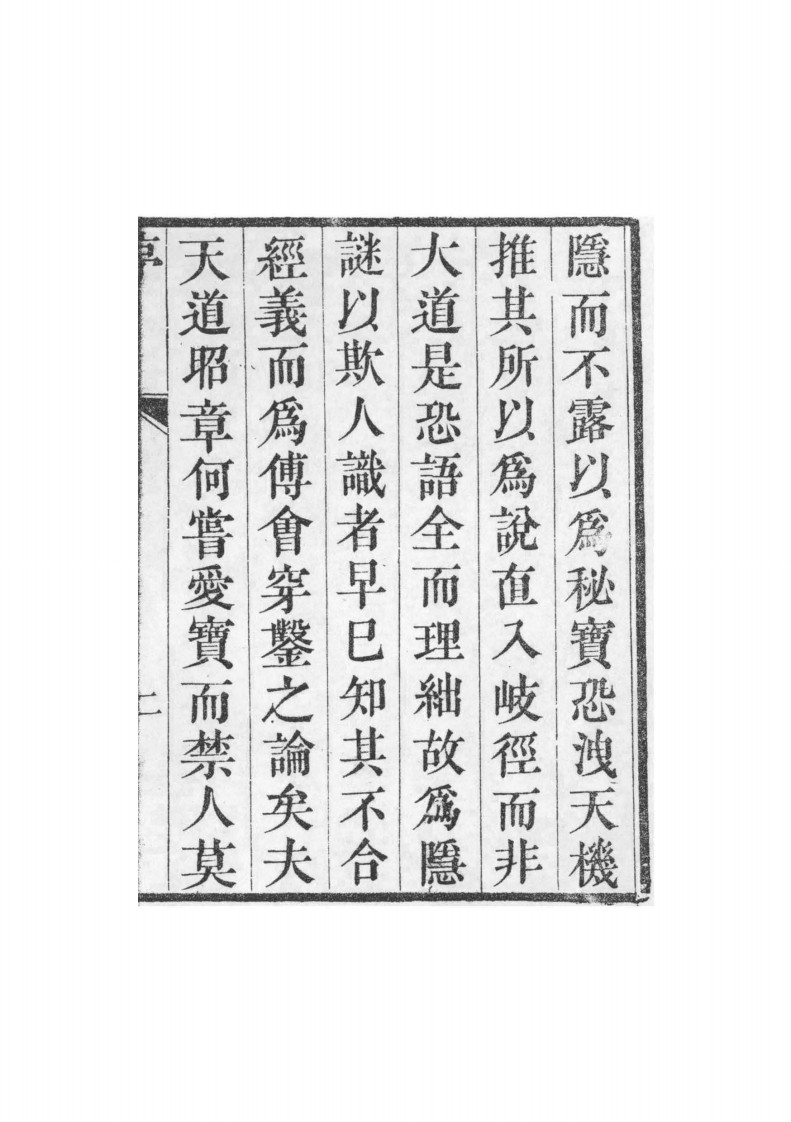 隱而不露以爲秘寶恐洩天機
推其所以爲說直入岐徑而非
大道是恐語全而理絀故爲隱
謎以欺人識者早已知其不合
經義而爲傅會穿鑿之論矣夫
天道昭章何嘗愛寶而禁人莫